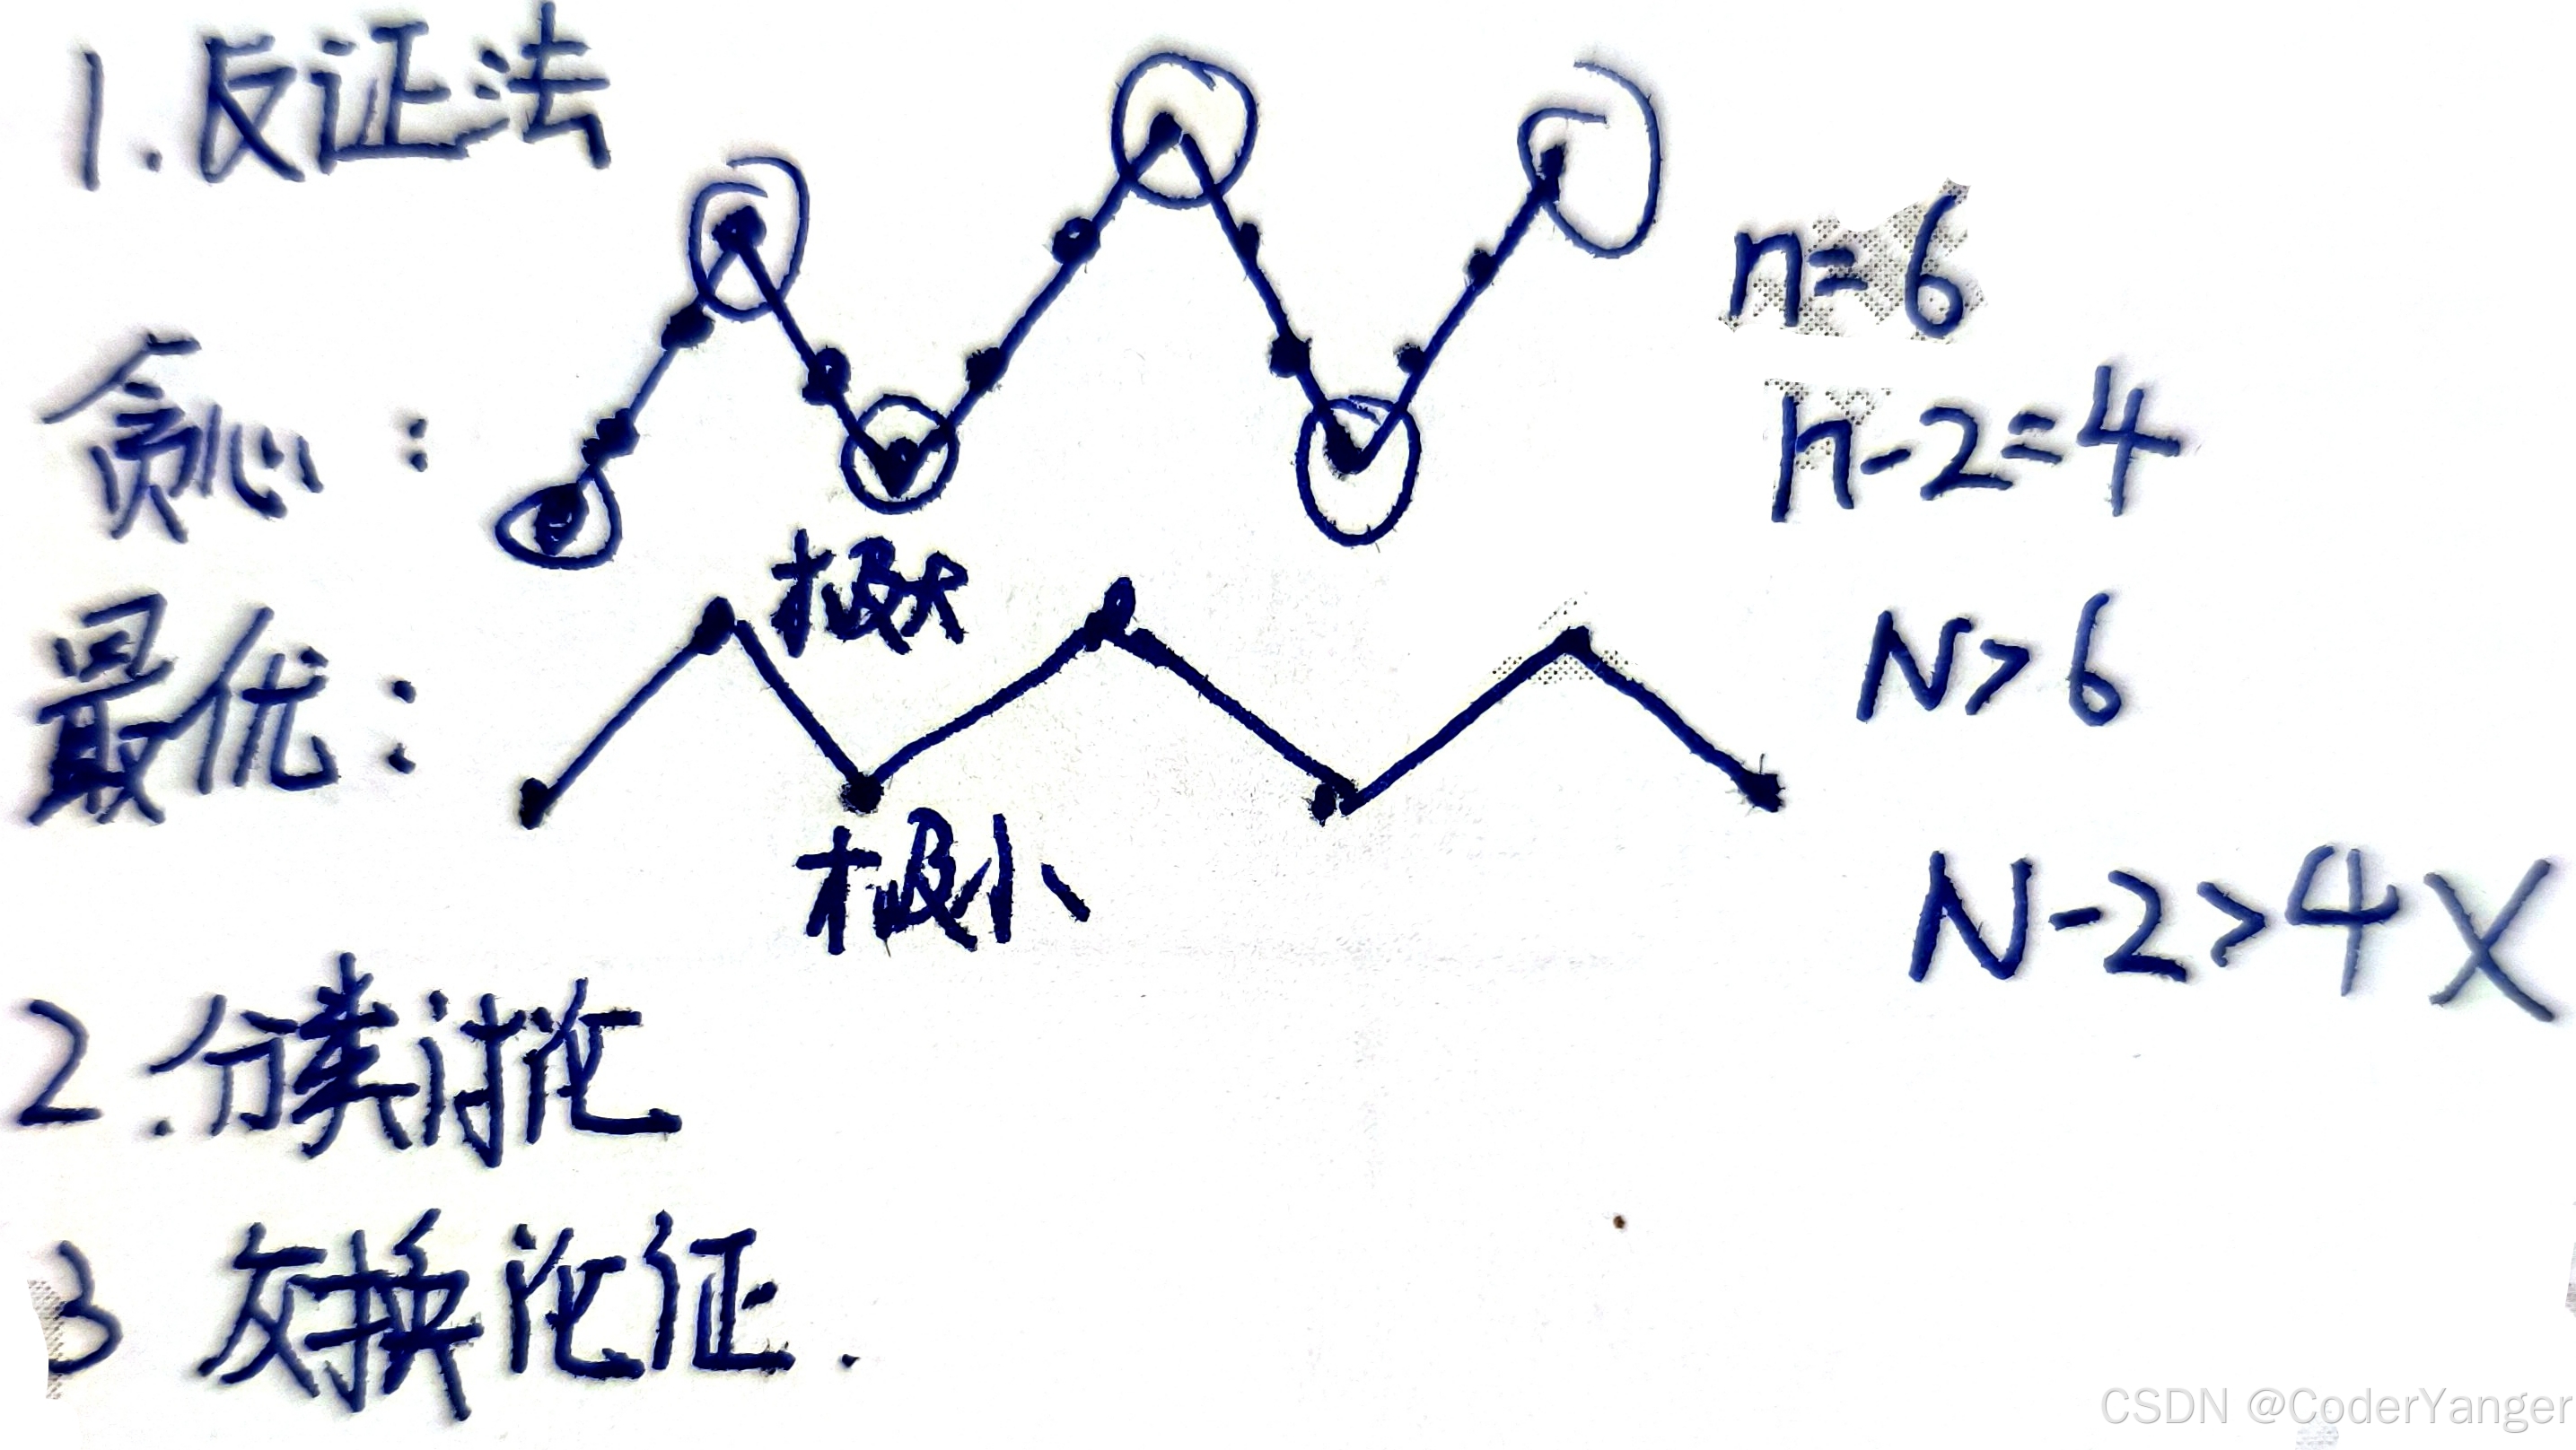 1.反证法
n=6
贪心：
n-2=4
极大
最优：
N>6
极小
N-2>4 X
2.分类讨论
3 交换论证.
CSDN @CoderYanger